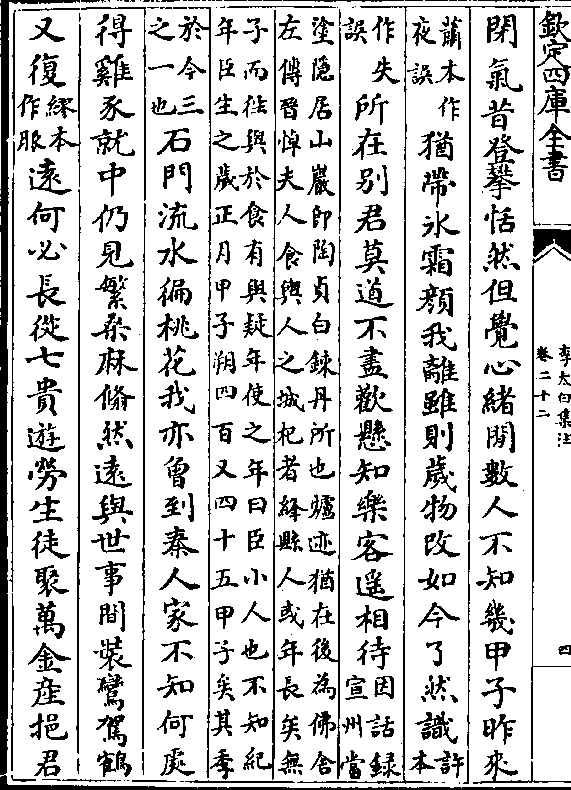 欽定四庫全書
李太白集注
卷二十二
四
閉氣昔登攀恬然但覺心緒閒數人不知幾甲子昨來
蕭本作
夜誤
猶帶氷霜顔我離雖則歲物改如今了然識
許
本
作失
誤
所在别君莫道不盡歡懸知樂客遥相待
因話錄
宣州當
塗隱居山巖即陶貞白鍊丹所也爐迹猶在後為佛舍
左傳晉悼夫人食輿人之城杞者絳縣人或年長矣無
子而往與於食有與疑年使之年曰臣小人也不知紀
年臣生之歲正月甲子朔四百又四十五甲子矣其季
於今三
之一也
石門流水徧桃花我亦曾到秦人家不知何處
得雞豕就中仍見繁桑麻翛然遠與世事間裝鸞駕鶴
又復
繆本
作服
遠何必長從七貴遊勞生徒聚萬金産挹君